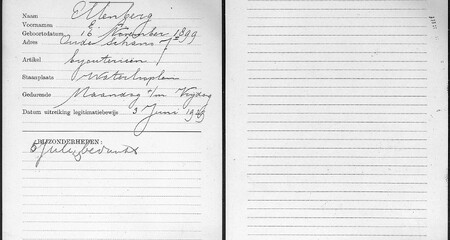 Naam Ettenberg
Voornamen E
Geboortedatum 16 November 1899
Adres Oude Schans 7
Artikel bijouterieën
Standplaats Waterlooplein
Gedurende Maandag t/m Vrijdag
Datum uitreiking legitimatiebewijs 3 Juni 19
BIJZONDERHEDEN:
6 July bedankt